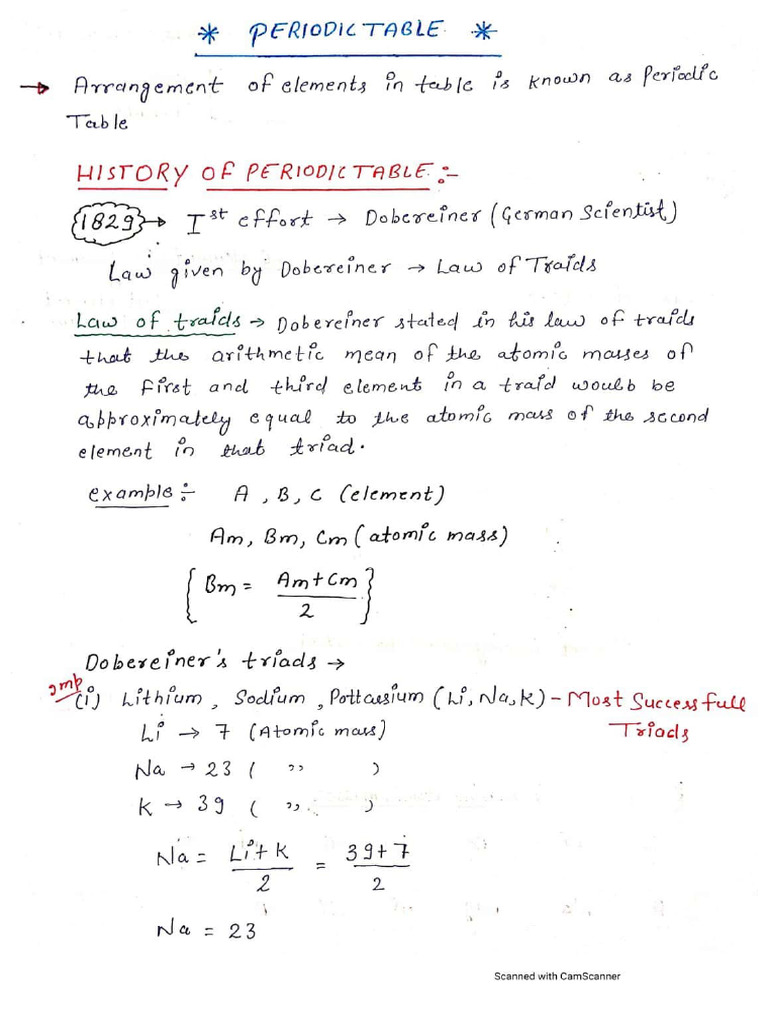 * PERIODIC TABLE *
→ Arrangement of elements in table is known as Periodic
Table
HISTORY OF PERIODIC TABLE :-
1829 → Ist effort → Dobereiner (German Scientist)
Law given by Dobereiner → Law of Traids
Law of traids → Dobereiner stated in his law of traids
that the arithmetic mean of the atomic masses of
the first and third element in a traid would be
approximately equal to the atomic mass of the second
element in that triad.
example :- A , B , C (element)
Am, Bm, Cm (atomic mass)
{ Bm = Am + Cm / 2 }
Dobereiner's triads →
Imp (i) Lithium , Sodium , Pottassium (Li, Na, K) - Most Successfull
Triads
Li → 7 (Atomic mass)
Na → 23 ( ,, )
K → 39 ( ,, )
Na = Li + K / 2 = 39 + 7 / 2
Na = 23
Scanned with CamScanner